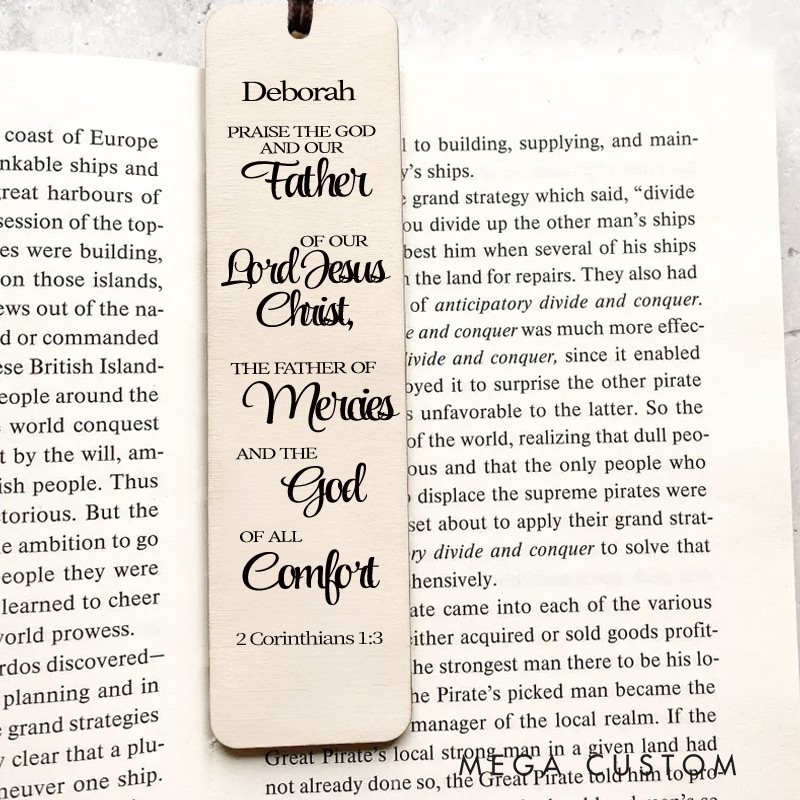 coast of Europe
nkable ships and
reat harbours of
session of the top-
es were building,
on those islands,
ews out of the na-
d or commanded
ese British Island-
eople around the
world conquest
t by the will, am-
ish people. Thus
torious. But the
e ambition to go
eople they were
learned to cheer
world prowess.
rdos discovered—
planning and in
e grand strategies
y clear that a plu-
neuver one ship.
Deborah
PRAISE THE GOD
AND OUR
Father
OF OUR
Lord Jesus
Christ,
THE FATHER OF
Mercies
AND THE
God
OF ALL
Comfort
2 Corinthians 1:3
l to building, supplying, and main-
y's ships.
grand strategy which said, “divide
ou divide up the other man's ships
best him when several of his ships
n the land for repairs. They also had
of anticipatory divide and conquer.
e and conquer was much more effec-
ivide and conquer, since it enabled
oyed it to surprise the other pirate
s unfavorable to the latter. So the
of the world, realizing that dull peo-
ous and that the only people who
displace the supreme pirates were
set about to apply their grand strat-
ry divide and conquer to solve that
hensively.
ate came into each of the various
either acquired or sold goods profit-
he strongest man there to be his lo-
he Pirate's picked man became the
manager of the local realm. If the
Great Pirate's local strong-man in a given land had
not already done so, the Great Pirate told him to pro-
MEGA CUSTOM